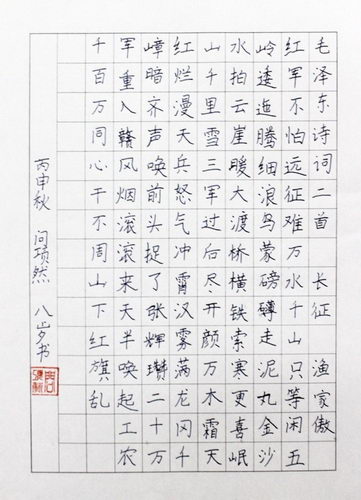 毛泽东诗词二首 长征 渔家傲
红军不怕远征难万水千山只等闲五
岭逶迤腾细浪乌蒙磅礴走泥丸金沙
水拍云崖暖大渡桥横铁索寒更喜岷
山千里雪三军过后尽开颜万木霜天
红烂漫天兵怒气冲霄汉雾满龙冈千
嶂暗齐声唤前头捉了张辉瓒二十万
军重入赣风烟滚滚来天半唤起工农
千百万同心干不周山下红旗乱
丙申秋 问项然 八岁书